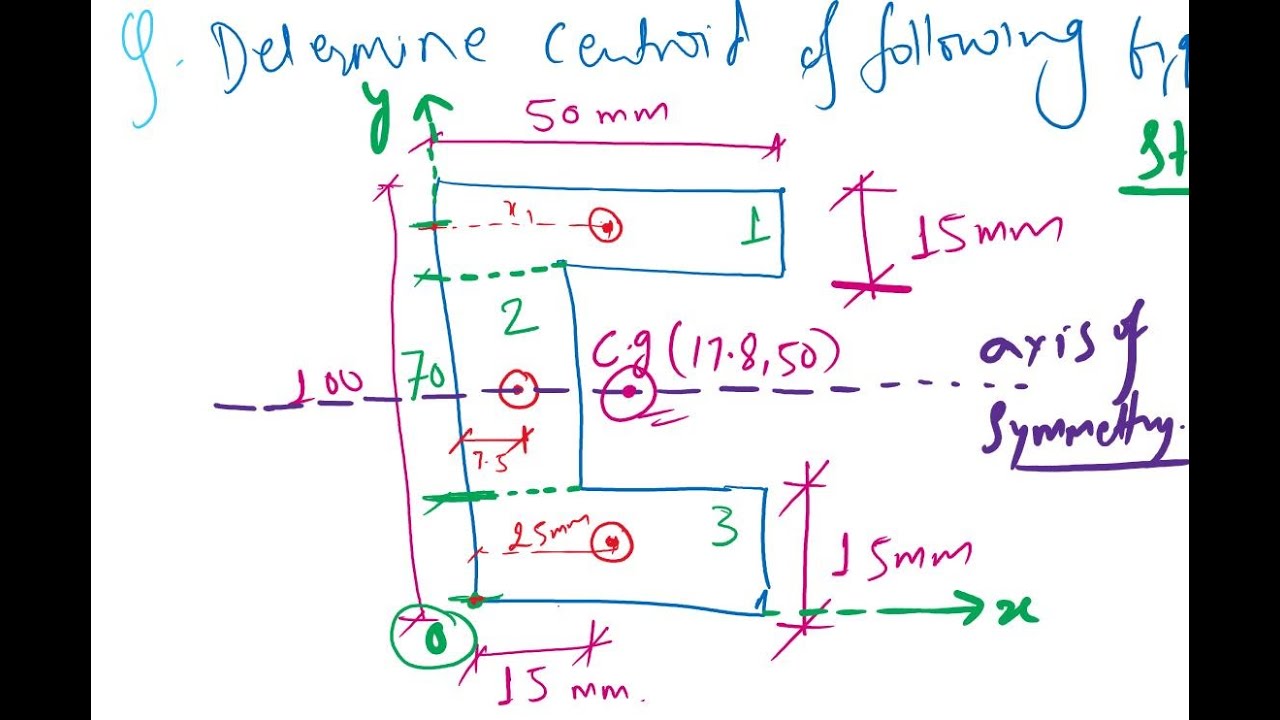 Q. Determine centroid of following fig
y
50 mm
St
x1
1
15mm
2
C.g (17.8,50)
axis of
symmetry.
100
70
7.5
25mm
3
15mm
0
x
15 mm.